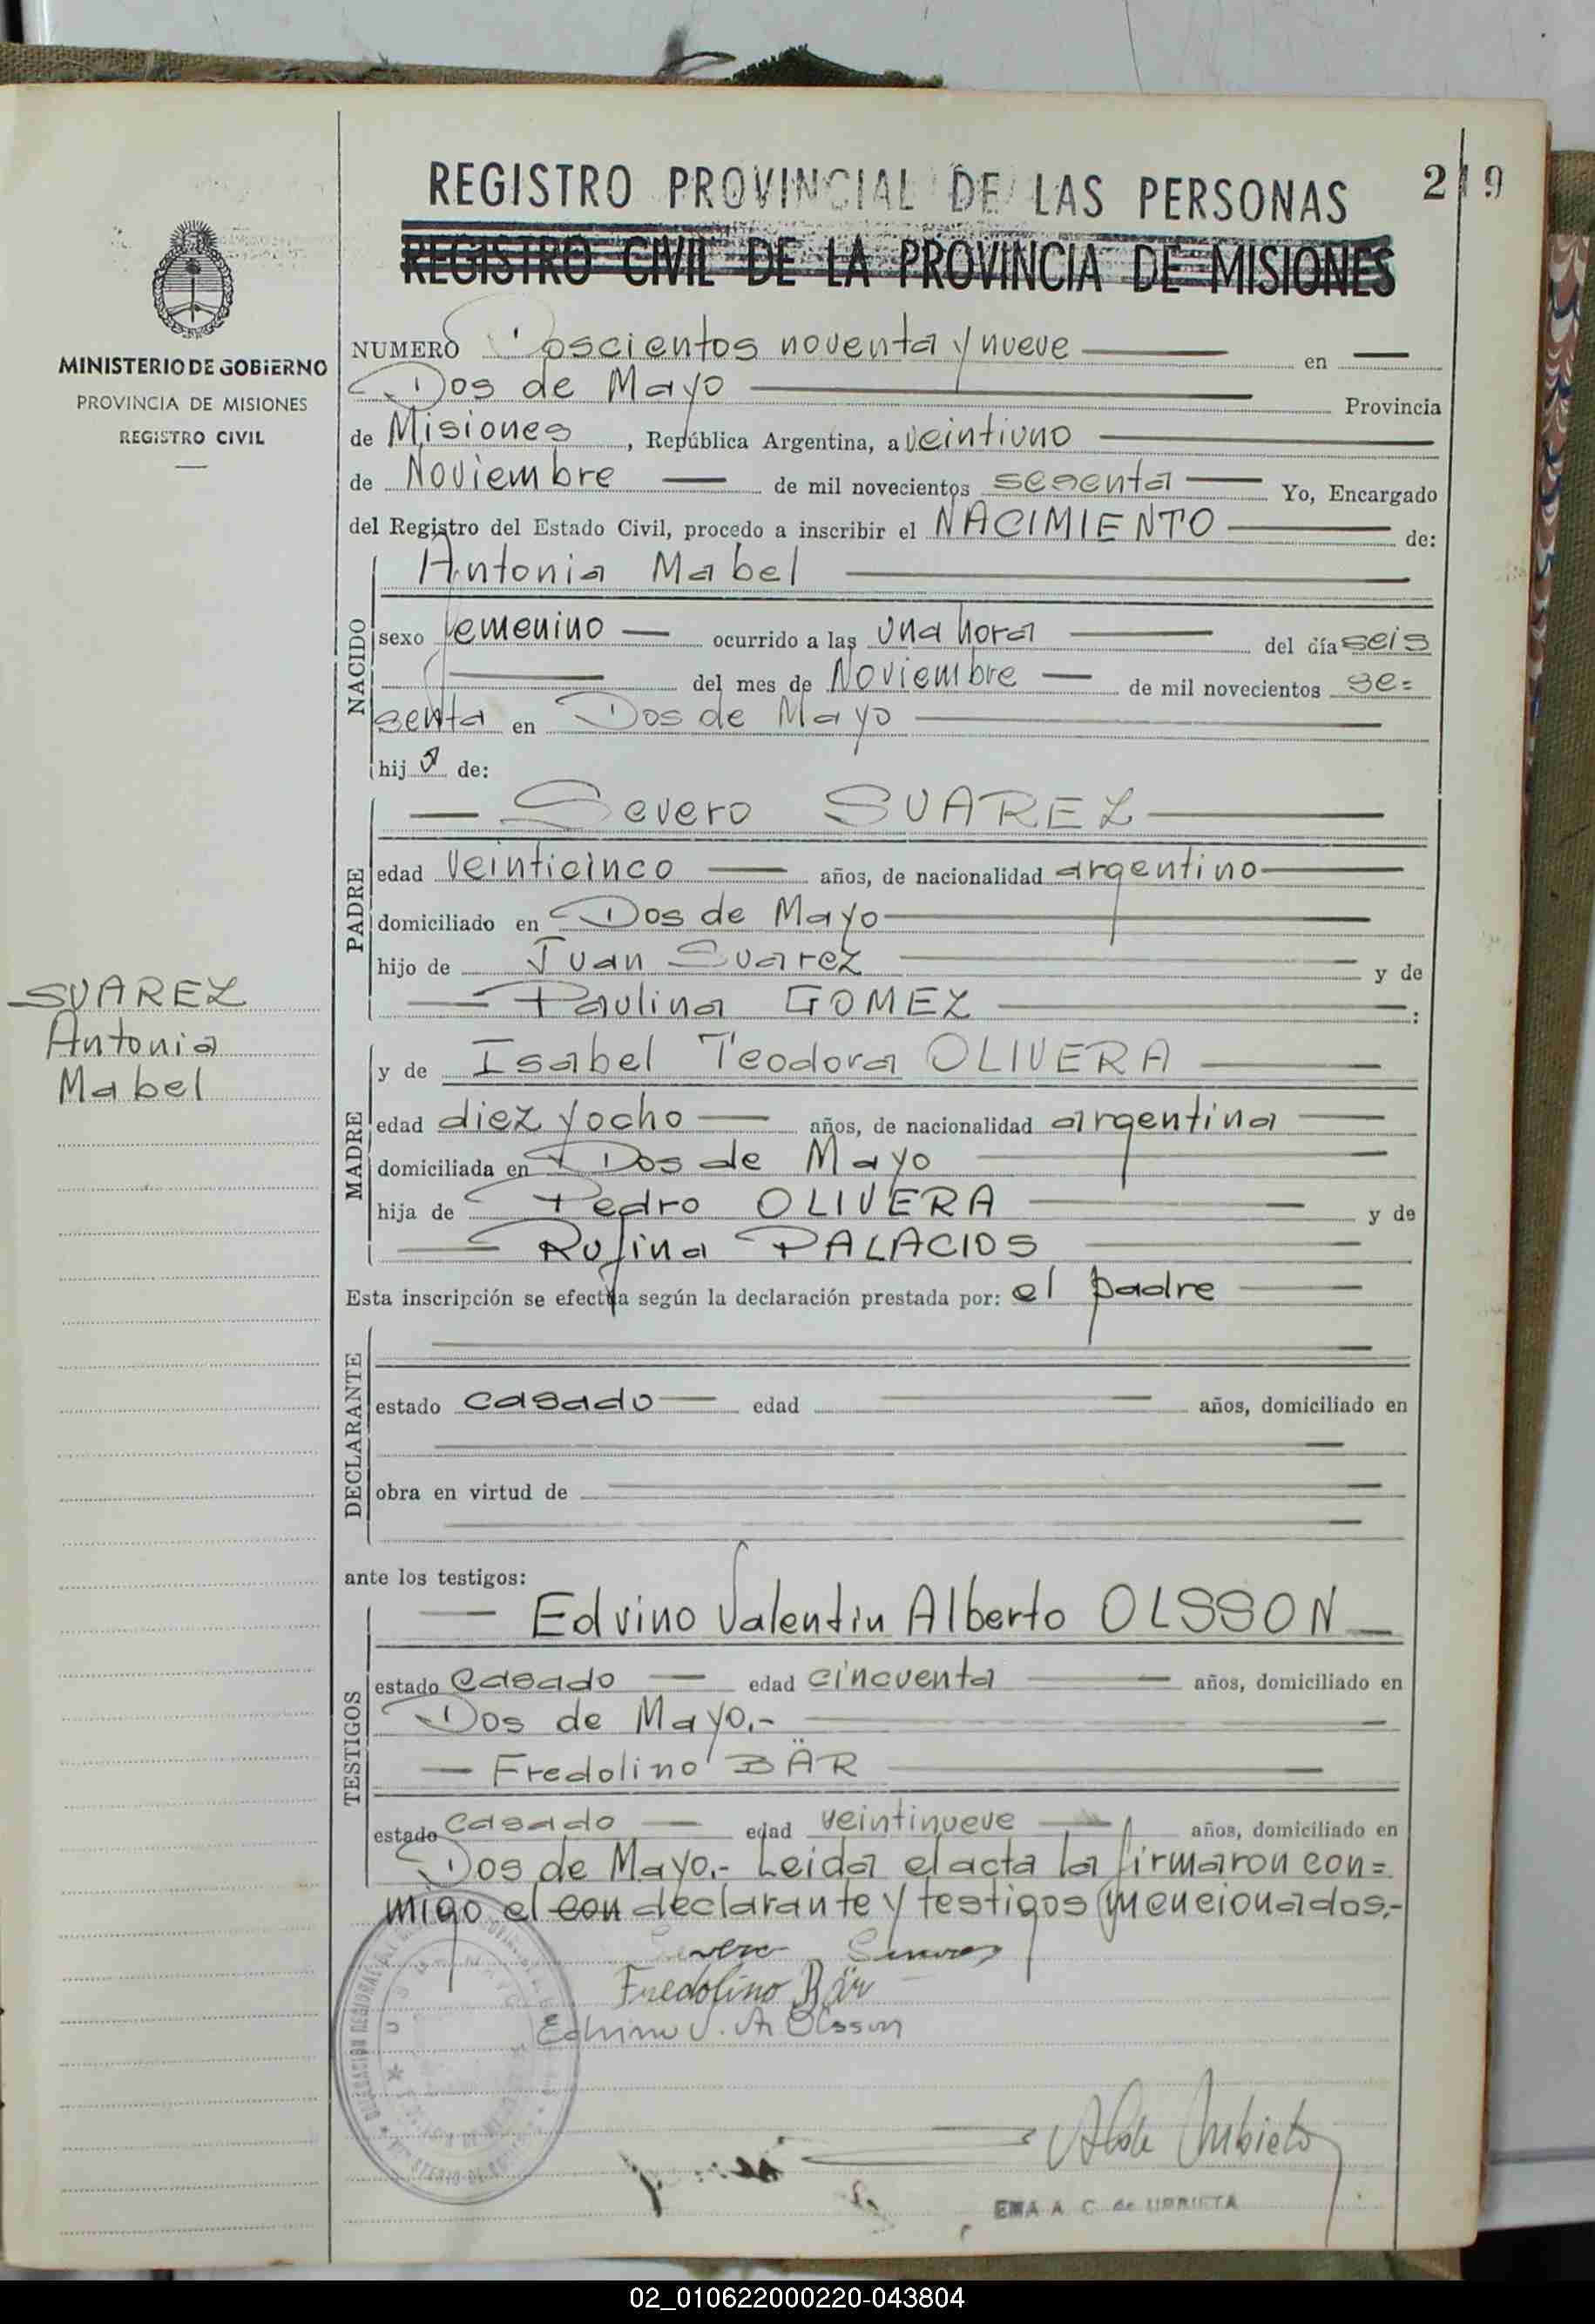 REGISTRO PROVINCIAL DE LAS PERSONAS
219
REGISTRO CIVIL DE LA PROVINCIA DE MISIONES
MINISTERIO DE GOBIERNO
PROVINCIA DE MISIONES
REGISTRO CIVIL
NUMERO Doscientos noventa y nueve en
Dos de Mayo Provincia
de Misiones, República Argentina, a veintiuno
de Noviembre de mil novecientos sesenta Yo, Encargado
del Registro del Estado Civil, procedo a inscribir el NACIMIENTO de:
NACIDO
Antonia Mabel
sexo femenino ocurrido a las una hora del día seis
del mes de Noviembre de mil novecientos se=
senta en Dos de Mayo
hija de:
PADRE
Severo SUAREZ
edad veinticinco años, de nacionalidad argentino
domiciliado en Dos de Mayo
hijo de Juan Suarez y de
Paulina GOMEZ :
SUAREZ
Antonia
Mabel
MADRE
y de Isabel Teodora OLIVERA
edad diez y ocho años, de nacionalidad argentina
domiciliada en Dos de Mayo
hija de Pedro OLIVERA y de
Rufina PALACIOS
Esta inscripción se efectúa según la declaración prestada por: el padre
DECLARANTE
estado casado edad años, domiciliado en
obra en virtud de
ante los testigos:
TESTIGOS
Edvino Valentin Alberto OLSSON
estado casado edad cincuenta años, domiciliado en
Dos de Mayo.-
Fredolino BÄR
estado casado edad veintinueve años, domiciliado en
Dos de Mayo.- Leida el acta la firmaron con=
migo el con declarante y testigos mencionados.-
Severo Suarez
Fredolino Bär
Edvino V. A. Olsson
EMA A. C. de URRIETA
02_010622000220-043804